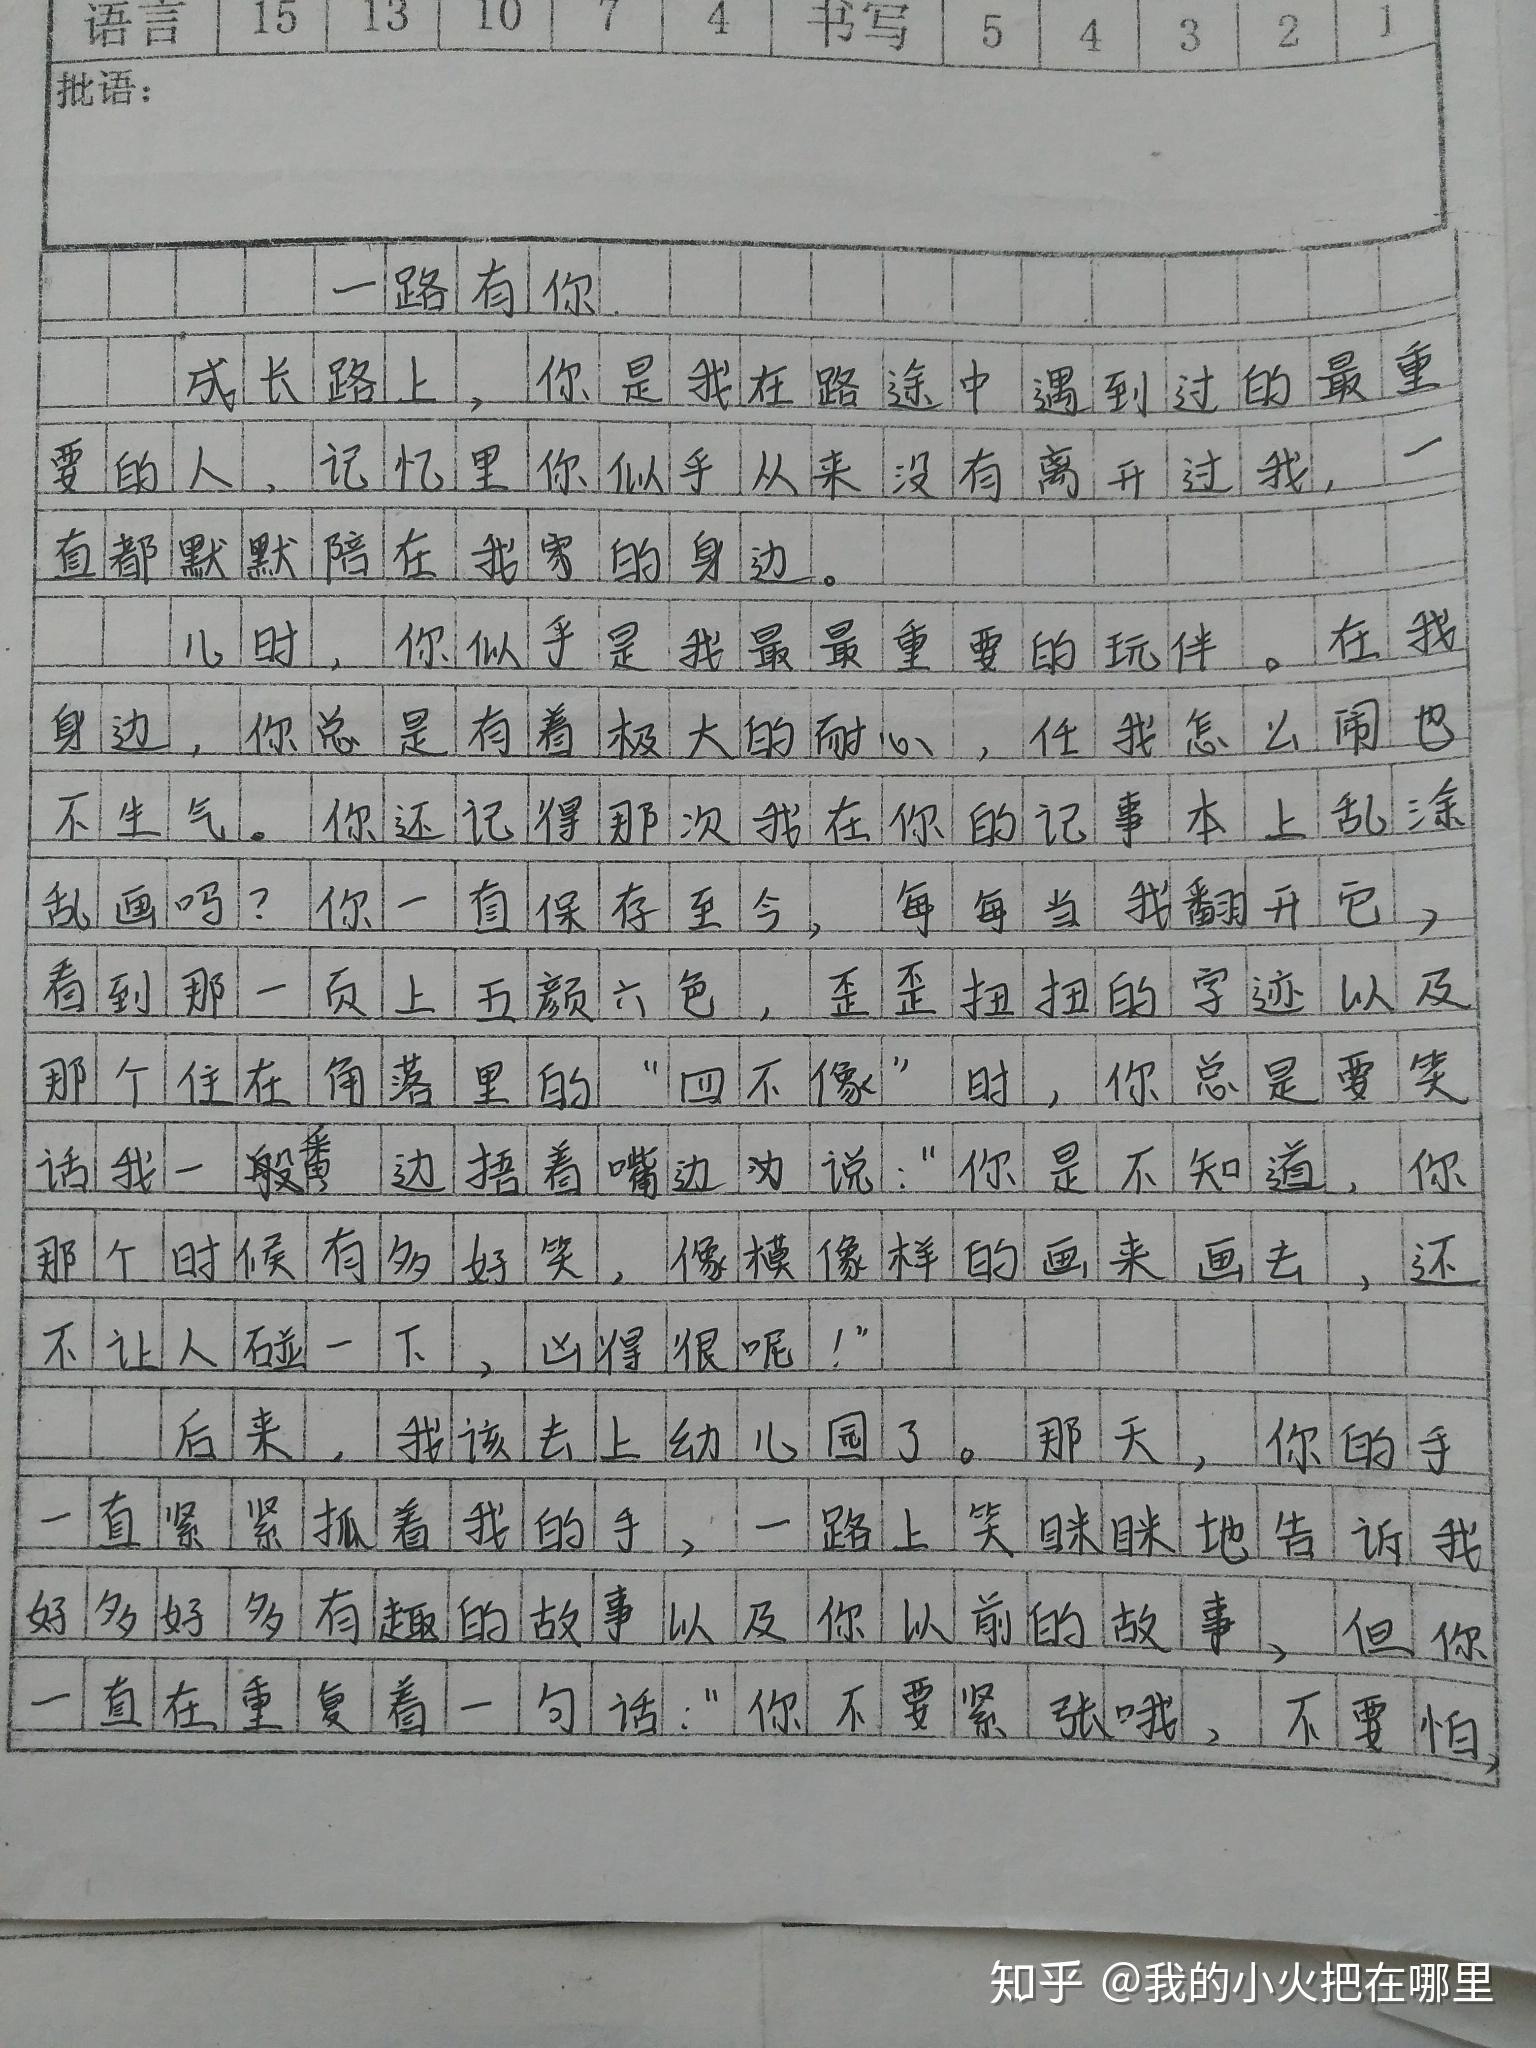 语言 15 13 10 7 4 书写 5 4 3 2 1
批语：
一路有你
成长路上，你是我在路途中遇到过的最重
要的人，记忆里你似乎从来没有离开过我，一
直都默默陪在我家的身边。
儿时，你似乎是我最最重要的玩伴。在我
身边，你总是有着极大的耐心，任我怎么闹也
不生气。你还记得那次我在你的记事本上乱涂
乱画吗？你一直保存至今，每每当我翻开它，
看到那一页上五颜六色，歪歪扭扭的字迹以及
那个住在角落里的“四不像”时，你总是要笑
话我一般番边捂着嘴边劝说：“你是不知道，你
那个时候有多好笑，像模像样的画来画去，还
不让人碰一下，凶得很呢！”
后来，我该去上幼儿园了。那天，你的手
一直紧紧抓着我的手，一路上笑眯眯地告诉我
好多好多有趣的故事以及你以前的故事，但你
一直在重复着一句话：“你不要紧张哦，不要怕，
知乎 @我的小火把在哪里